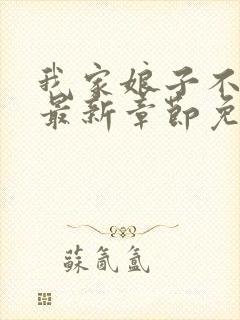 我家娘子不
最新章節免
蘇氤氳